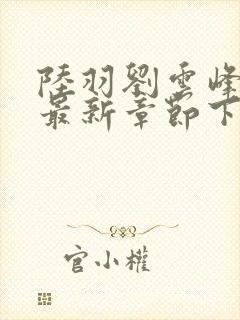 陸羽劉雲峰
最新章節下
官小權